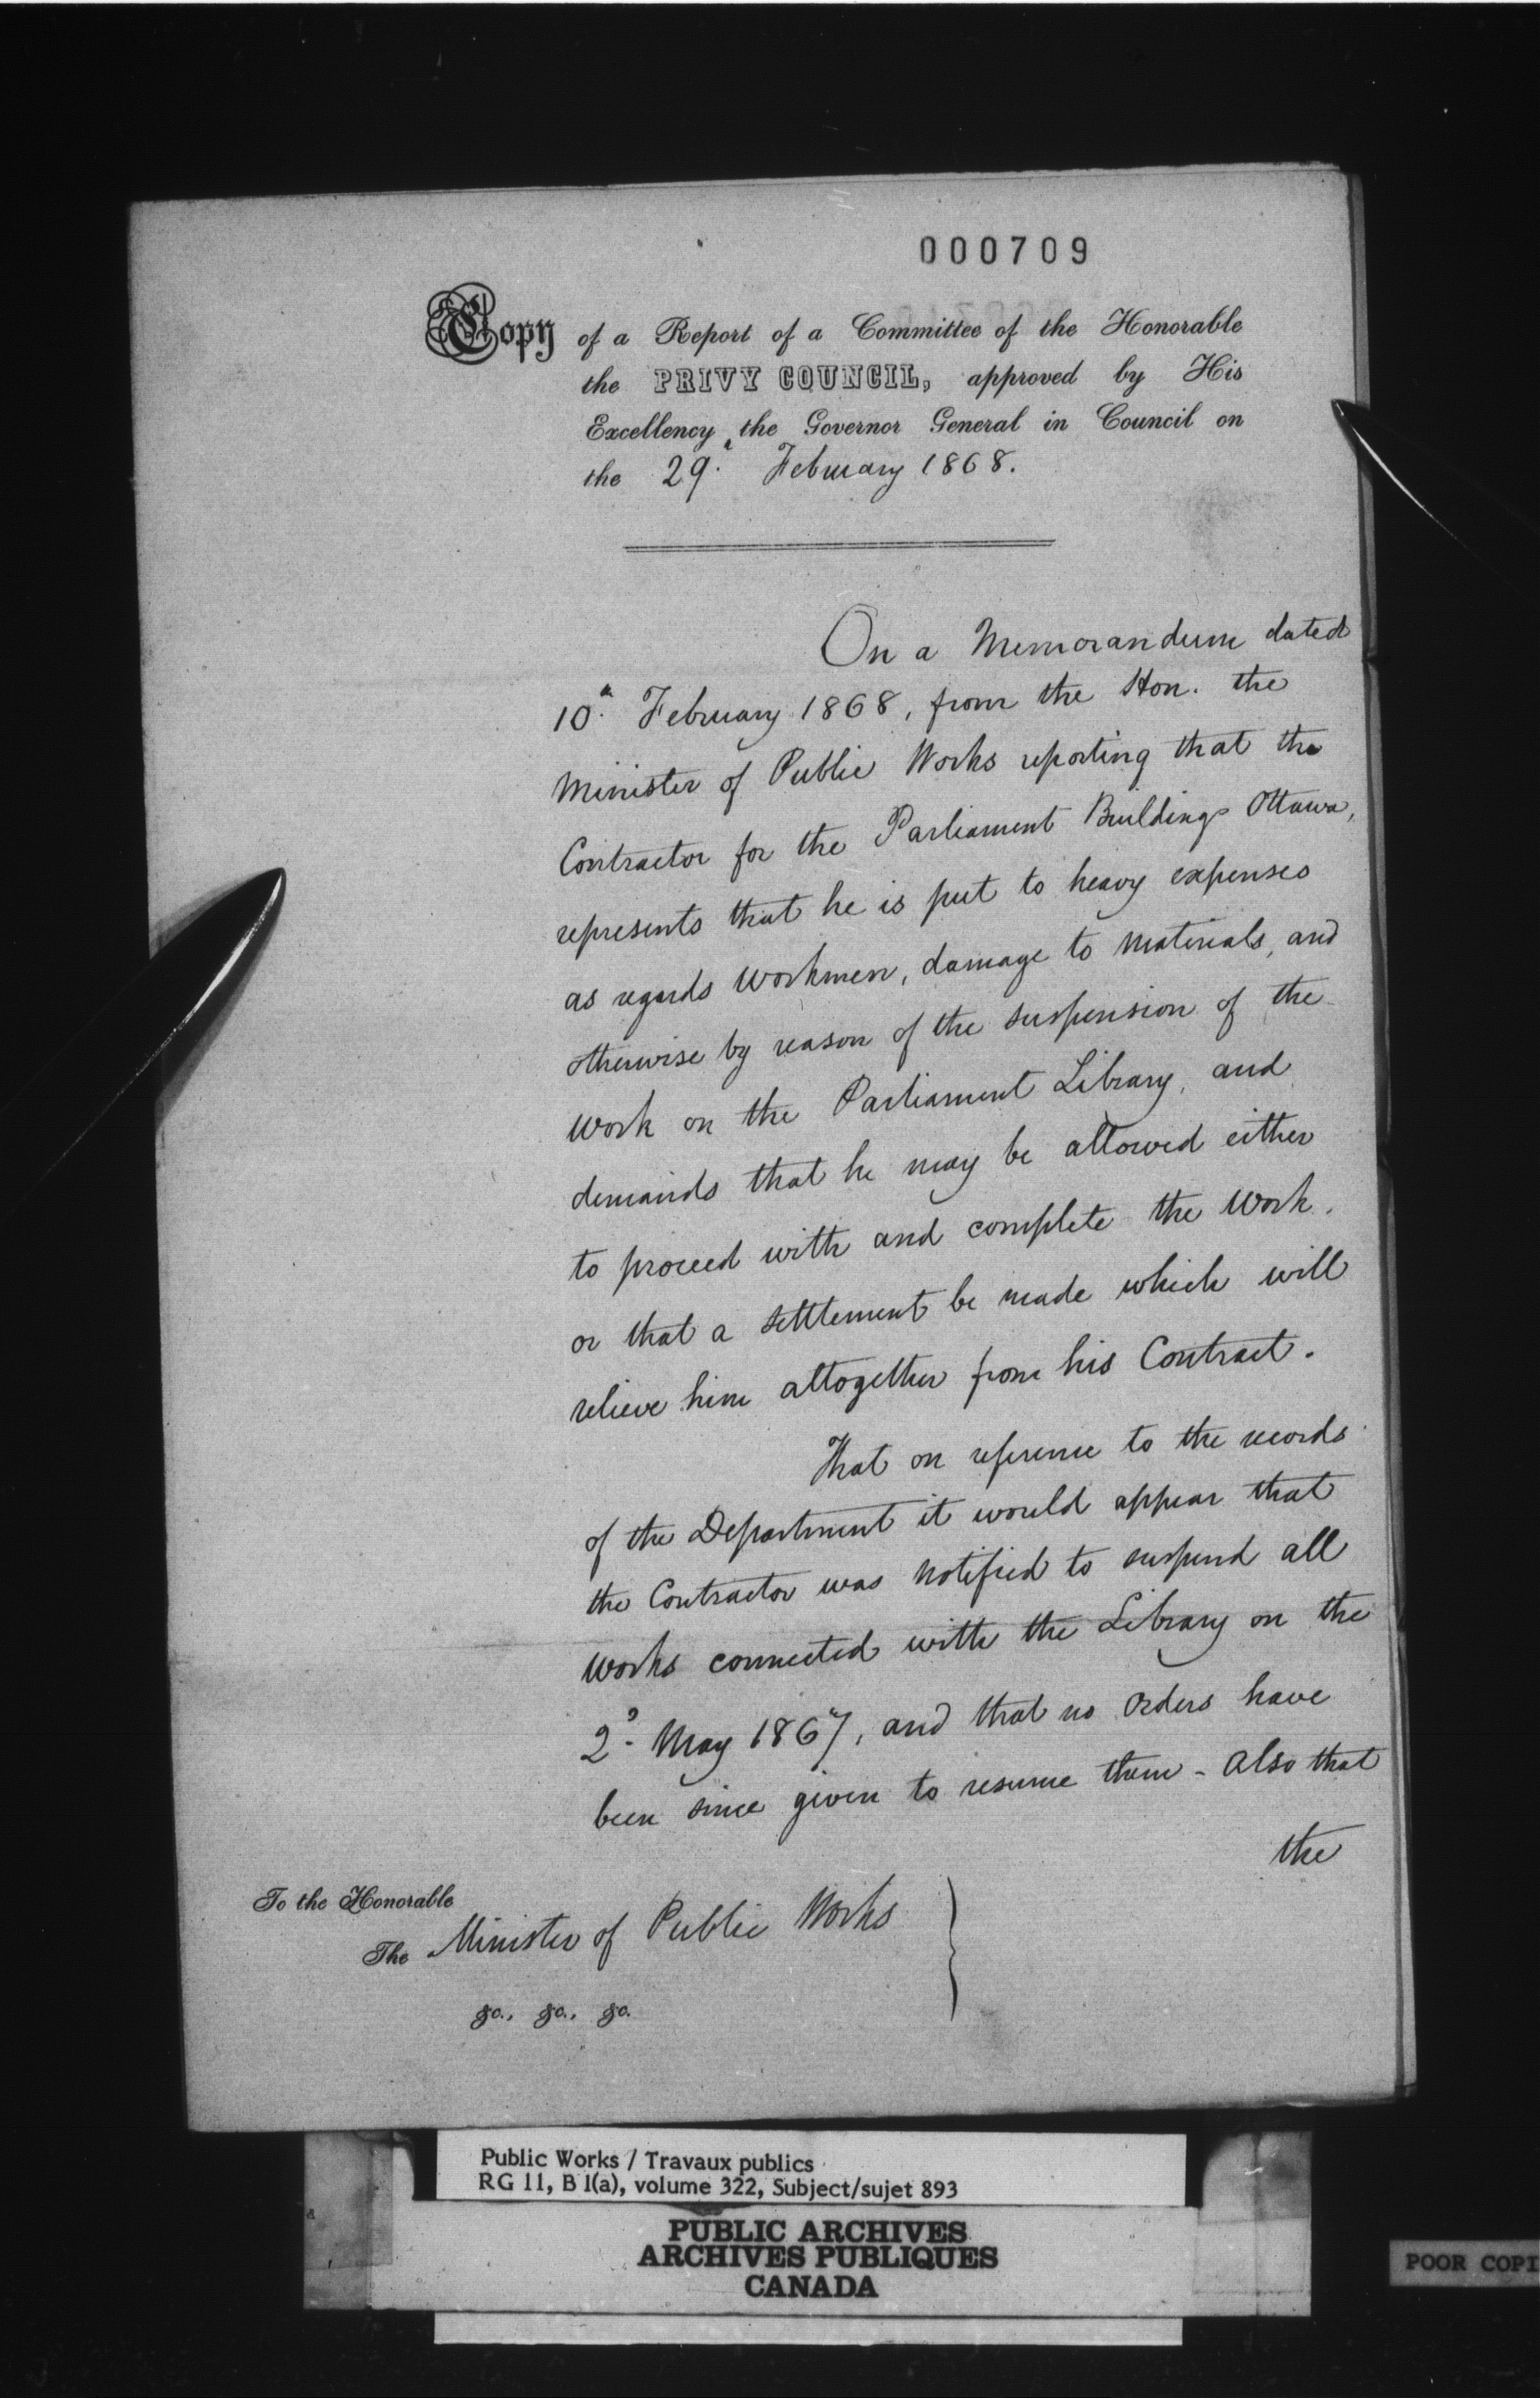 000709
Copy of a Report of a Committee of the Honorable
the PRIVY COUNCIL, approved by His
Excellency the Governor General in Council on
the 29th February 1868.
On a Memorandum dated
10th February 1868, from the Hon. the
Minister of Public Works reporting that the
Contractor for the Parliament Buildings Ottawa,
represents that he is put to heavy expenses
as regards workmen, damage to materials, and
otherwise by reason of the suspension of the
work on the Parliament Library, and
demands that he may be allowed either
to proceed with and complete the work,
or that a settlement be made which will
relieve him altogether from his Contract.
That on reference to the records
of the Department it would appear that
the Contractor was notified to suspend all
works connected with the Library on the
2d May 1867, and that no orders have
been since given to resume them - Also that
the
To the Honorable
The Minister of Public Works
&c., &c., &c.
Public Works / Travaux publics
RG 11, B 1(a), volume 322, Subject/sujet 893
PUBLIC ARCHIVES
ARCHIVES PUBLIQUES
CANADA
POOR COPI